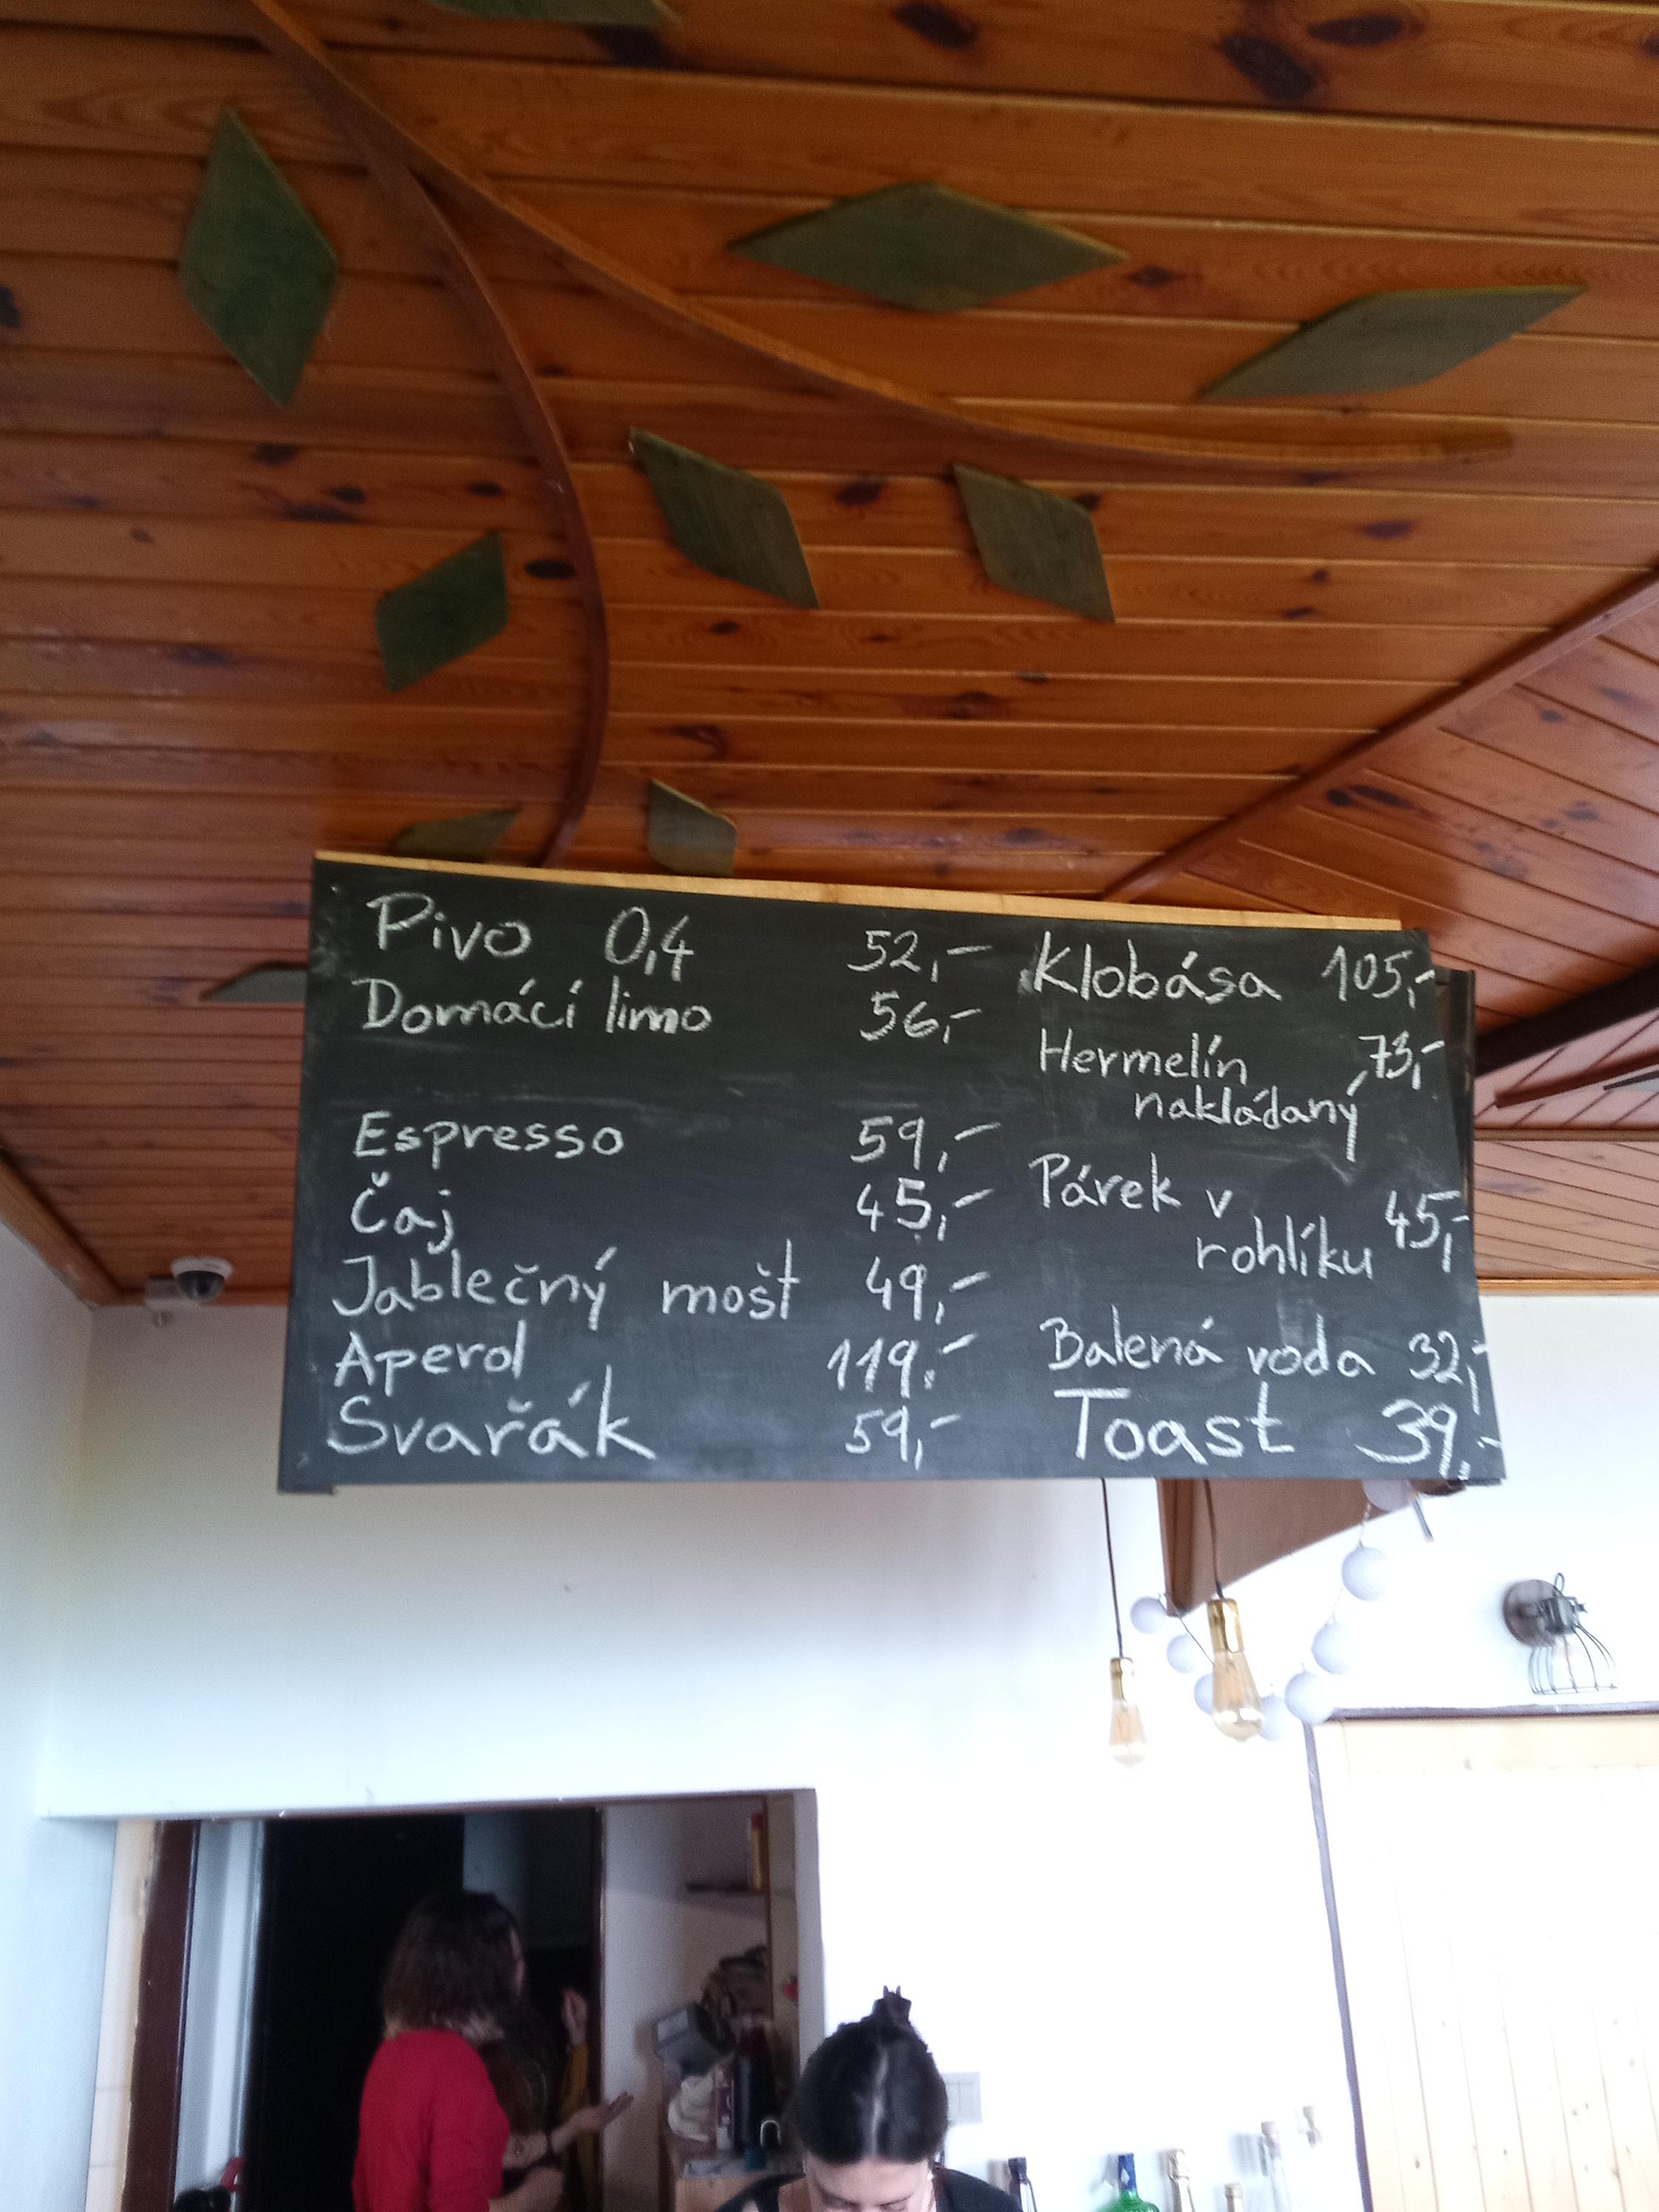 Pivo 0,4 52,-
Domácí limo 56,-
Espresso 59,-
Čaj 45,-
Jablečný mošt 49,-
Aperol 119,-
Svařák 59,-
Klobása 105,-
Hermelín 73,-
nakládaný
Párek v
rohlíku 45,-
Balená voda 32,-
Toast 39,-